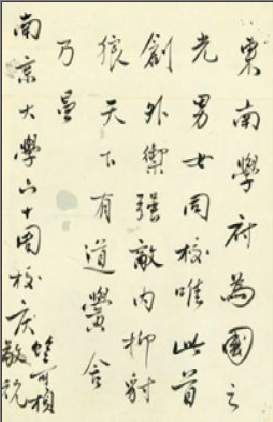 東南學府為國之
光男女同校唯此首
創外禦强敵内抑豺
狼天下有道黌舍
乃昌
南京大學六十周校庆
竺可楨
敬祝